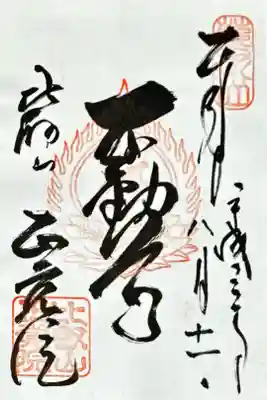 奉拝
平成三十年八月十一日
不動尊
比叡山
正覚院